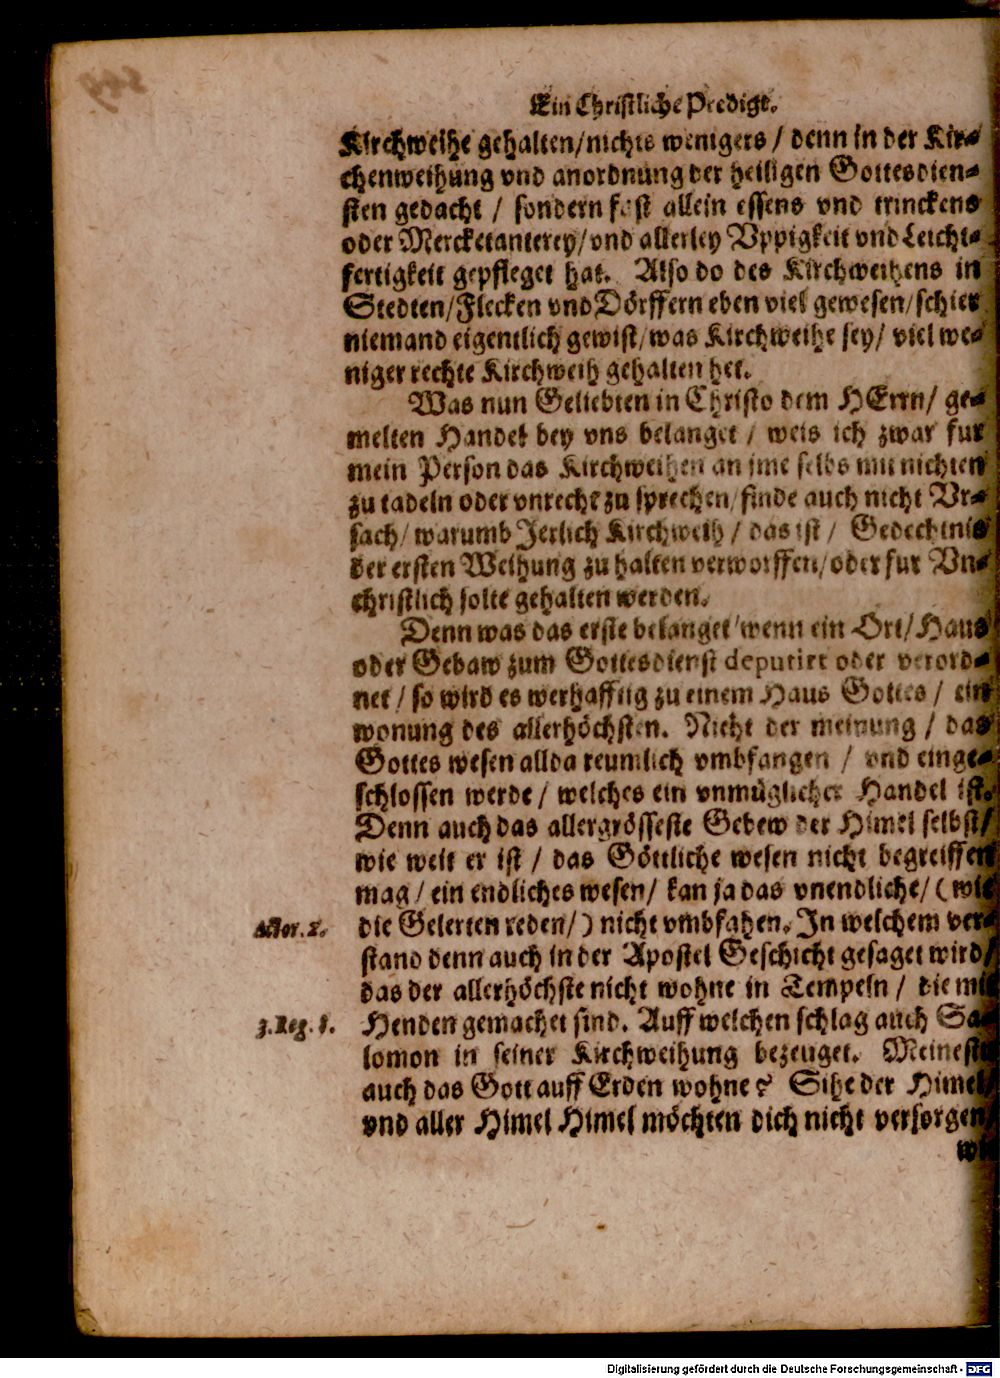 Ein Christliche Predigt.
Kirchweihe gehalten/nichts wenigers / denn in der Kir-
chenweihung vnd anordnung der heiligen Gottesdien-
sten gedacht / sondern fast allein essens vnd trinckens
oder Mercketanterey/vnd allerley Vppigkeit vnd Leicht-
fertigkeit gepfleget hat. Also do des Kirchweihens in
Stedten/Flecken vnd Dörffern eben viel gewesen/schier
niemand eigentlich gewist/was Kirchweihe sey/ viel we-
niger rechte Kirchweih gehalten het.
Was nun Geliebten in Christo dem HErrn/ ge-
melten Handel bey vns belanget / weis ich zwar fur
mein Person das Kirchweihen an ime selbs mit nichten
zu tadeln oder vnrecht zu sprechen/finde auch nicht Vr-
sach/ warumb Jerlich Kirchweih / das ist / Gedechtnis
der ersten Weihung zu halten verworffen/oder fur Vn-
christlich solte gehalten werden.
Denn was das erste belanget/wenn ein Ort/Haus
oder Gebaw zum Gottesdienst deputirt oder verord-
net / so wird es werhafftig zu einem Haus Gottes / ein
wonung des allerhöchsten. Nicht der meinung / das
Gottes wesen allda reumlich vmbfangen / vnd einge-
schlossen werde / welches ein vnmüglicher Handel ist.
Denn auch das allergrösseste Gebew der Himel selbst/
wie weit er ist / das Göttliche wesen nicht begreiffen
mag / ein endliches wesen/ kan ja das vnendliche/ (wie
die Gelerten reden/) nicht vmbfahen. In welchem ver-
stand denn auch in der Apostel Geschicht gesaget wird/
das der allerhöchste nicht wohne in Tempeln / die mit
Henden gemachet sind. Auff welchen schlag auch Sa-
lomon in seiner Kirchweihung bezeuget. Meinestu
auch das Gott auff Erden wohne? Sihe der Himel
vnd aller Himel Himel möchten dich nicht versorgen
wi
Actor.
3. Reg. 8.
Digitalisierung gefördert durch die Deutsche Forschungsgemeinschaft - DFG